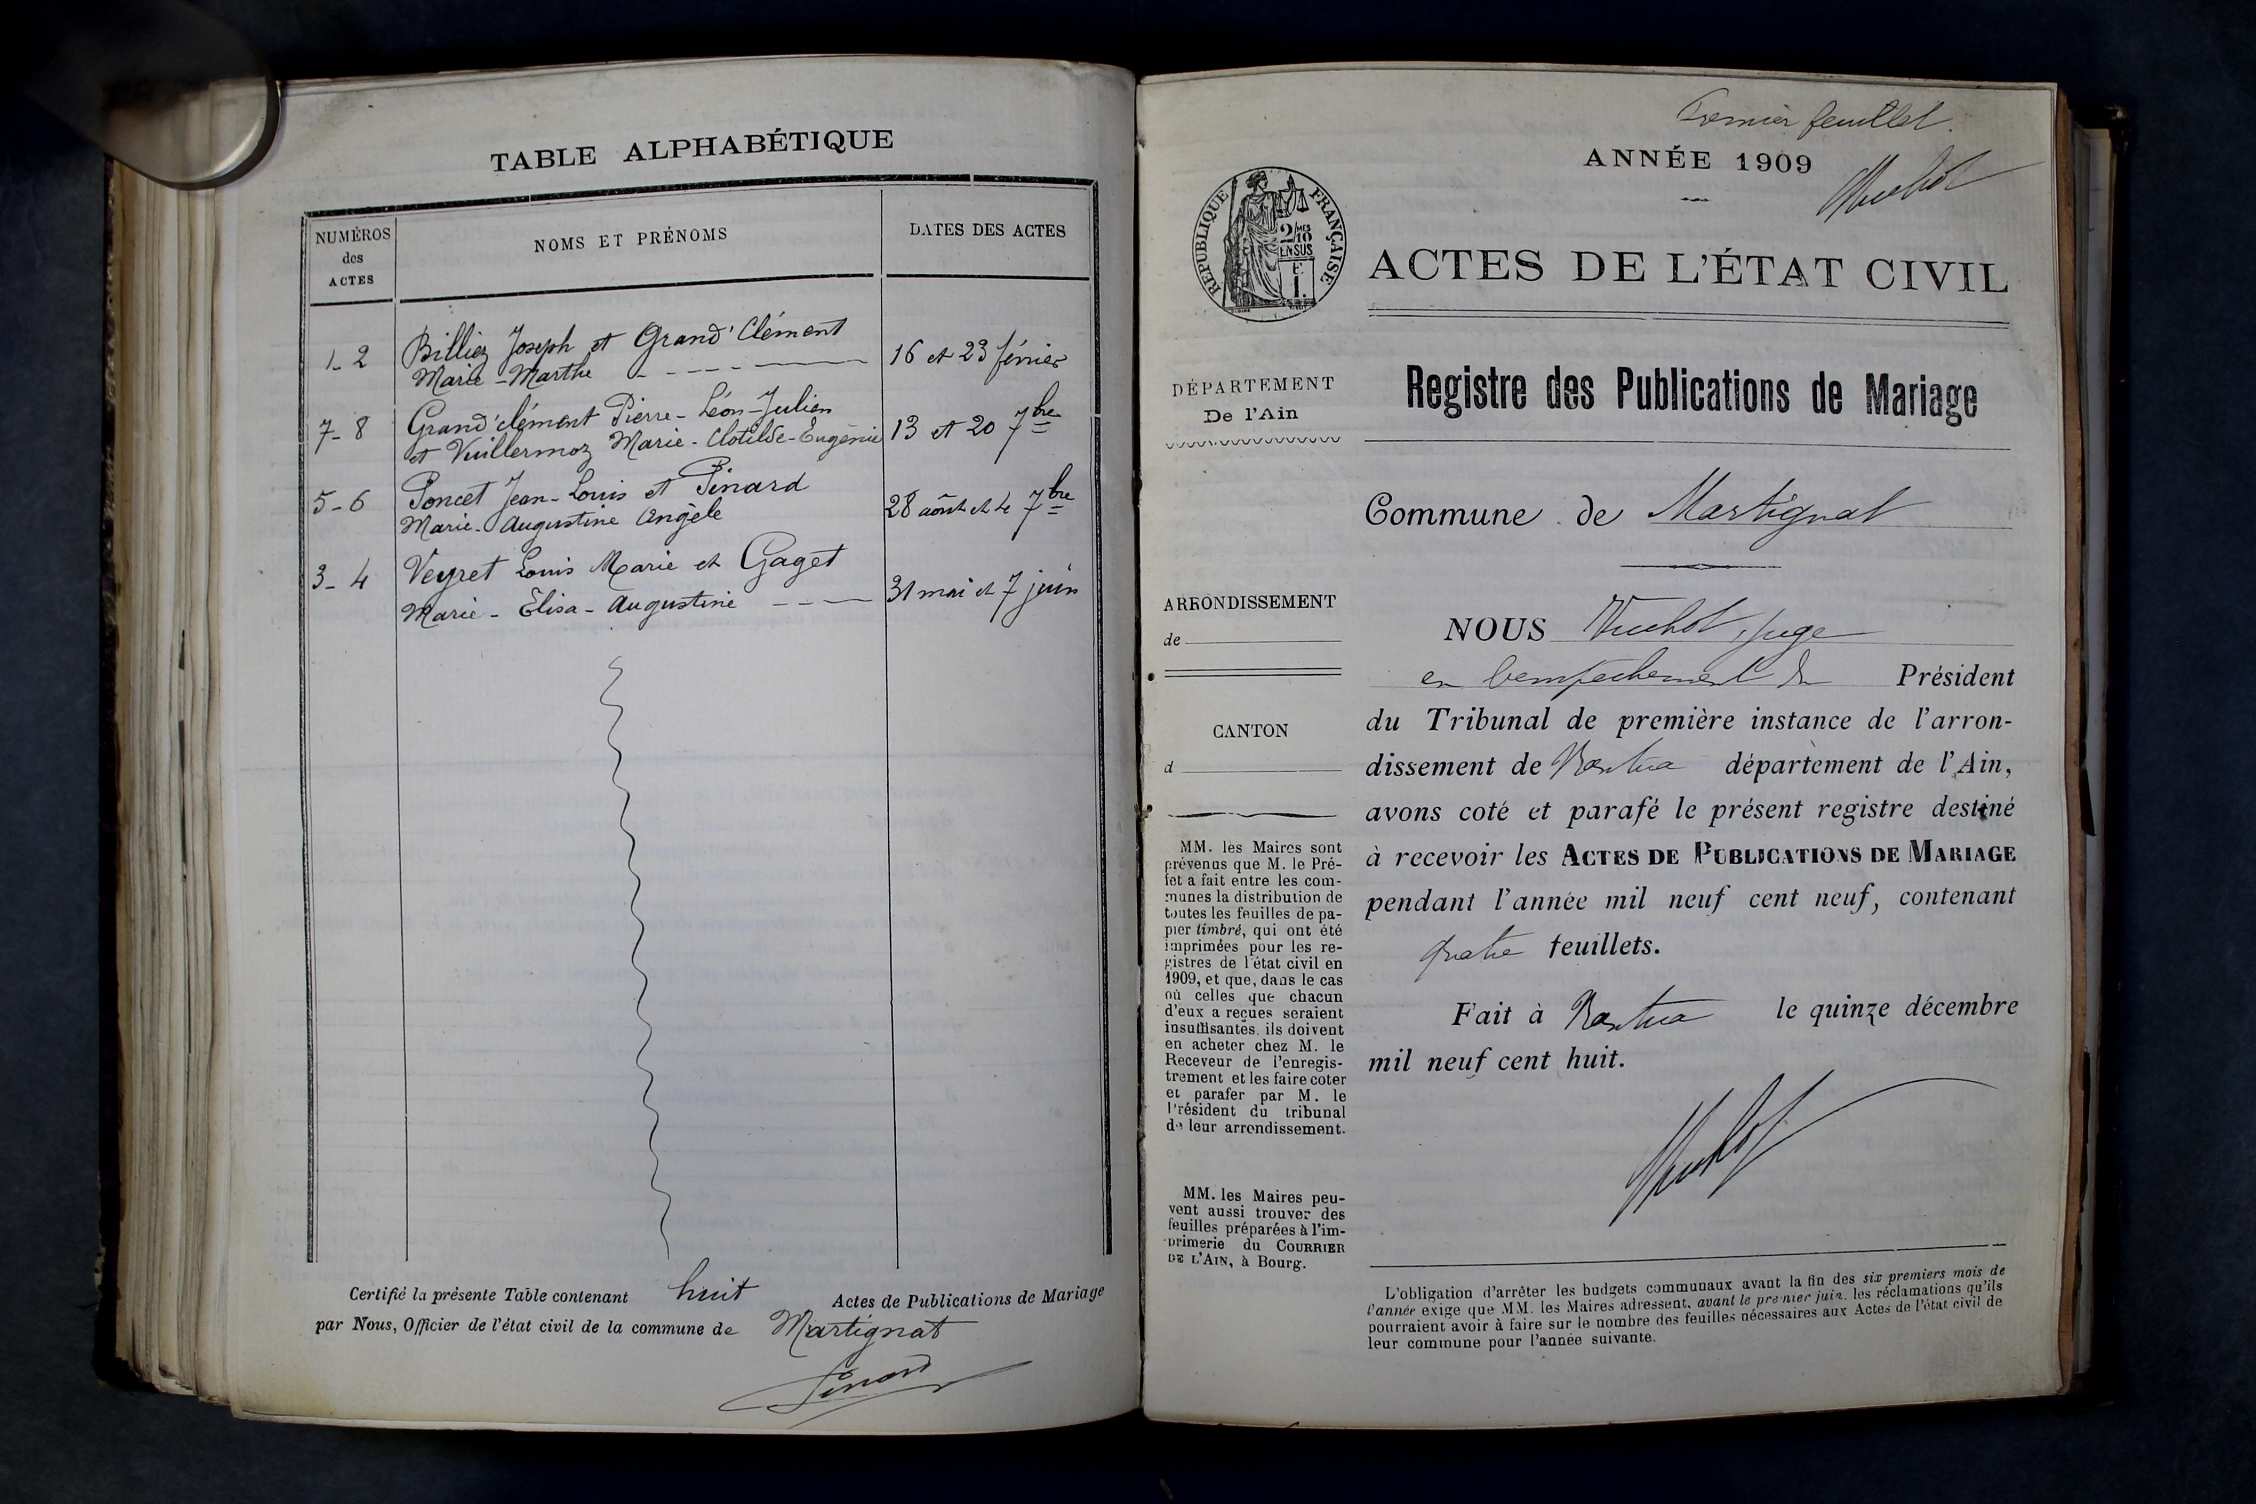 TABLE ALPHABÉTIQUE
NUMÉROS
des
ACTES
NOMS ET PRÉNOMS
DATES DES ACTES
1-2
Billiez Joseph et Grand'Clément
Marie-Marthe
16 et 23 février
7-8
Grand'clément Pierre-Léon-Julien
et Vuillermoz Marie-Clotilde-Eugénie
13 et 20 7bre
5-6
Poncet Jean-Louis et Pinard
Marie-Augustine Angèle
28 août et 4 7bre
3-4
Veyret Louis Marie et Gaget
Marie-Elisa-Augustine
31 mai et 7 juin
Certifié la présente Table contenant huit Actes de Publications de Mariage
par Nous, Officier de l'état civil de la commune de Martignat
Premier feuillet.
ANNÉE 1909
RÉPUBLIQUE FRANÇAISE
2/10MES
EN SUS
F
1.
ACTES DE L'ÉTAT CIVIL
DÉPARTEMENT
De l'Ain
Registre des Publications de Mariage
Commune de Martignat
ARRONDISSEMENT
de
CANTON
d
MM. les Maires sont
prévenus que M. le Pré-
fet a fait entre les com-
munes la distribution de
toutes les feuilles de pa-
pier timbré, qui ont été
imprimées pour les re-
gistres de l'état civil en
1909, et que, dans le cas
où celles que chacun
d'eux a reçues seraient
insuffisantes, ils doivent
en acheter chez M. le
Receveur de l'enregis-
trement et les faire coter
et parafer par M. le
Président du tribunal
de leur arrondissement.
MM. les Maires peu-
vent aussi trouver des
feuilles préparées à l'im-
primerie du COURRIER
DE L'AIN, à Bourg.
NOUS Vuchot, Juge
en l'empêchement du Président
du Tribunal de première instance de l'arron-
dissement de Nantua département de l'Ain,
avons coté et parafé le présent registre destiné
à recevoir les ACTES DE PUBLICATIONS DE MARIAGE
pendant l'année mil neuf cent neuf, contenant
quatre feuillets.
Fait à Nantua le quinze décembre
mil neuf cent huit.
L'obligation d'arrêter les budgets communaux avant la fin des six premiers mois de
l'année exige que MM. les Maires adressent, avant le premier juin, les réclamations qu'ils
pourraient avoir à faire sur le nombre des feuilles nécessaires aux Actes de l'état civil de
leur commune pour l'année suivante.